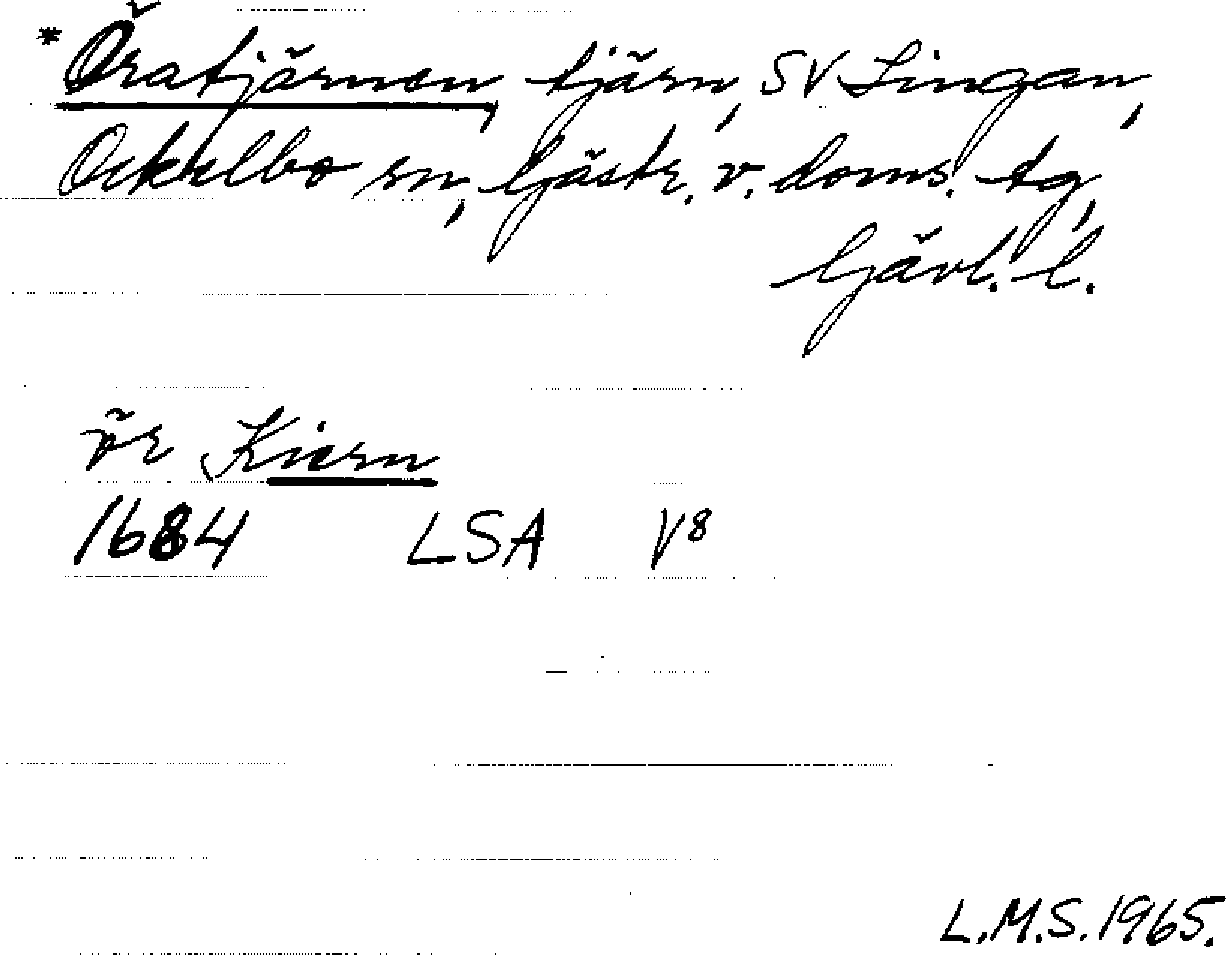 *Öratjärnen, tjärn, SV Lingan,
Ockelbo sn, Gästr. v. doms. tg,
Gävl. l.
ör Kiern
1684 LSA V8
L.M.S. 1965.